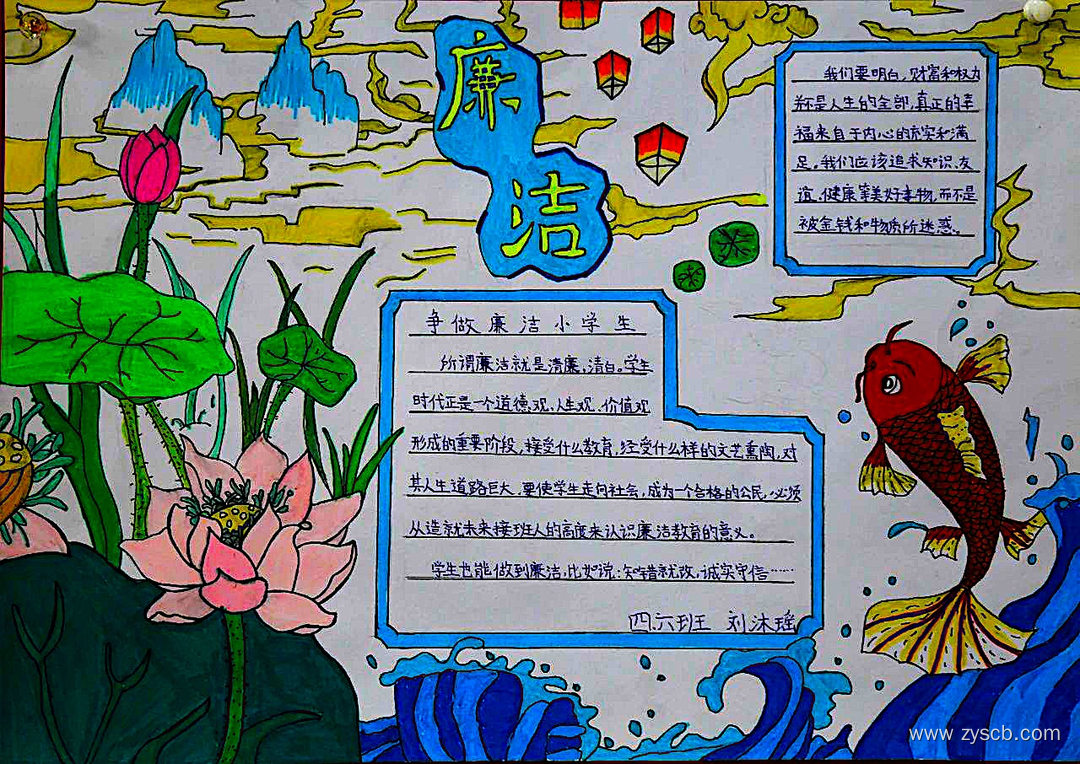 廉
洁
我们要明白，财富和权力
并不是人生的全部，真正的幸
福来自于内心的充实和满
足。我们应该追求知识、友
谊、健康等美好事物，而不是
被金钱和物质所迷惑。
争做廉洁小学生
所谓廉洁就是清廉，清白。学生
时代正是一个道德观、人生观、价值观
形成的重要阶段，接受什么教育，经受什么样的文艺熏陶，对
其人生道路巨大，要使学生走向社会，成为一个合格的公民，必须
从造就未来接班人的高度来认识廉洁教育的意义。
学生也能做到廉洁，比如说：知错就改，诚实守信……
四六班 刘沐瑶
www.zyscb.com